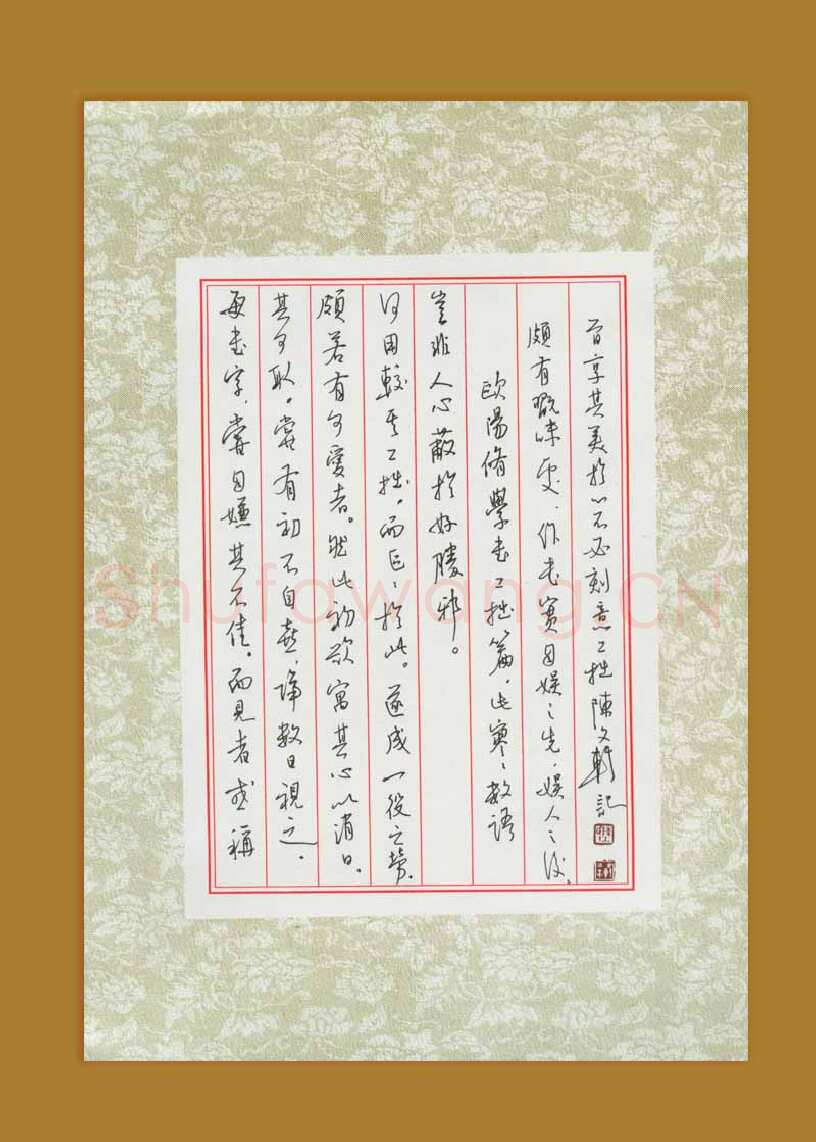 每書字，嘗自嫌其不佳。而見者或稱
其可取。嘗有初不自喜，隔數日視之，
頗若有可愛者。然此初欲寓其心以消日。
何用較其工拙，而區區於此。遂成一役之勞，
豈非人心蔽於好勝邪。
歐陽脩學書工拙篇，此寥寥數語
頗有翫味處，作書實自娛之先，娛人之後，
享其美於心不必刻意工拙陳文軒記
Shufawang.CN